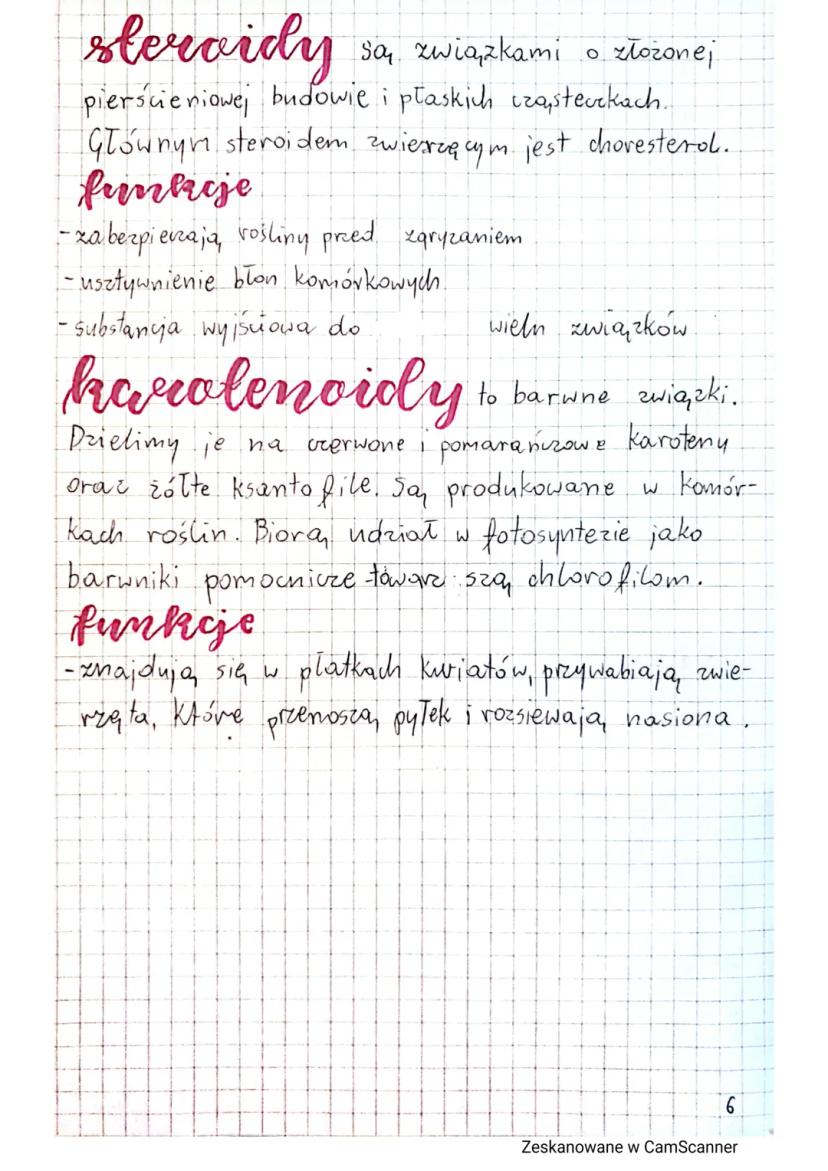 steroidy są związkami o złożonej
pierścieniowej budowie i płaskich cząsteczkach.
Głównym steroidem zwierzęcym jest chonesterol.
funkcje
-zabezpieczają rośliny przed zgryzaniem
-usztywnienie błon komórkowych
-substancja wyjściowa do wielu związków
karotenoidy to barwne związki.
Dzielimy je na czerwone i pomarańczowe karoteny
oraz żółte ksantofile. Są produkowane w komór-
kach roślin. Biorą udział w fotosyntezie jako
barwniki pomocnicze towarz szą chlorofilom.
funkcje
-znajdują się w płatkach kwiatów, przywabiają zwie-
rzęta, które przenoszą pyłek i rozsiewają nasiona.
6
Zeskanowane w CamScanner